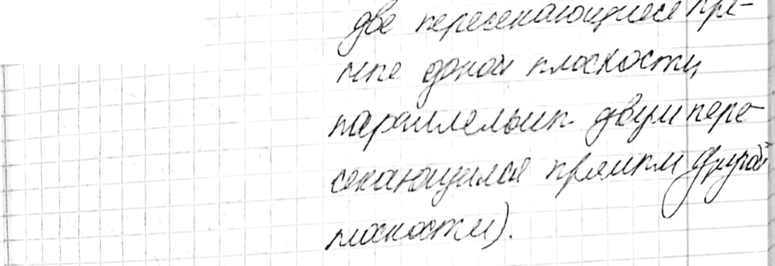 две пересекающиеся пря-
мые одной плоскости
параллельны двум пере-
секающимся прямым другой
плоскости).